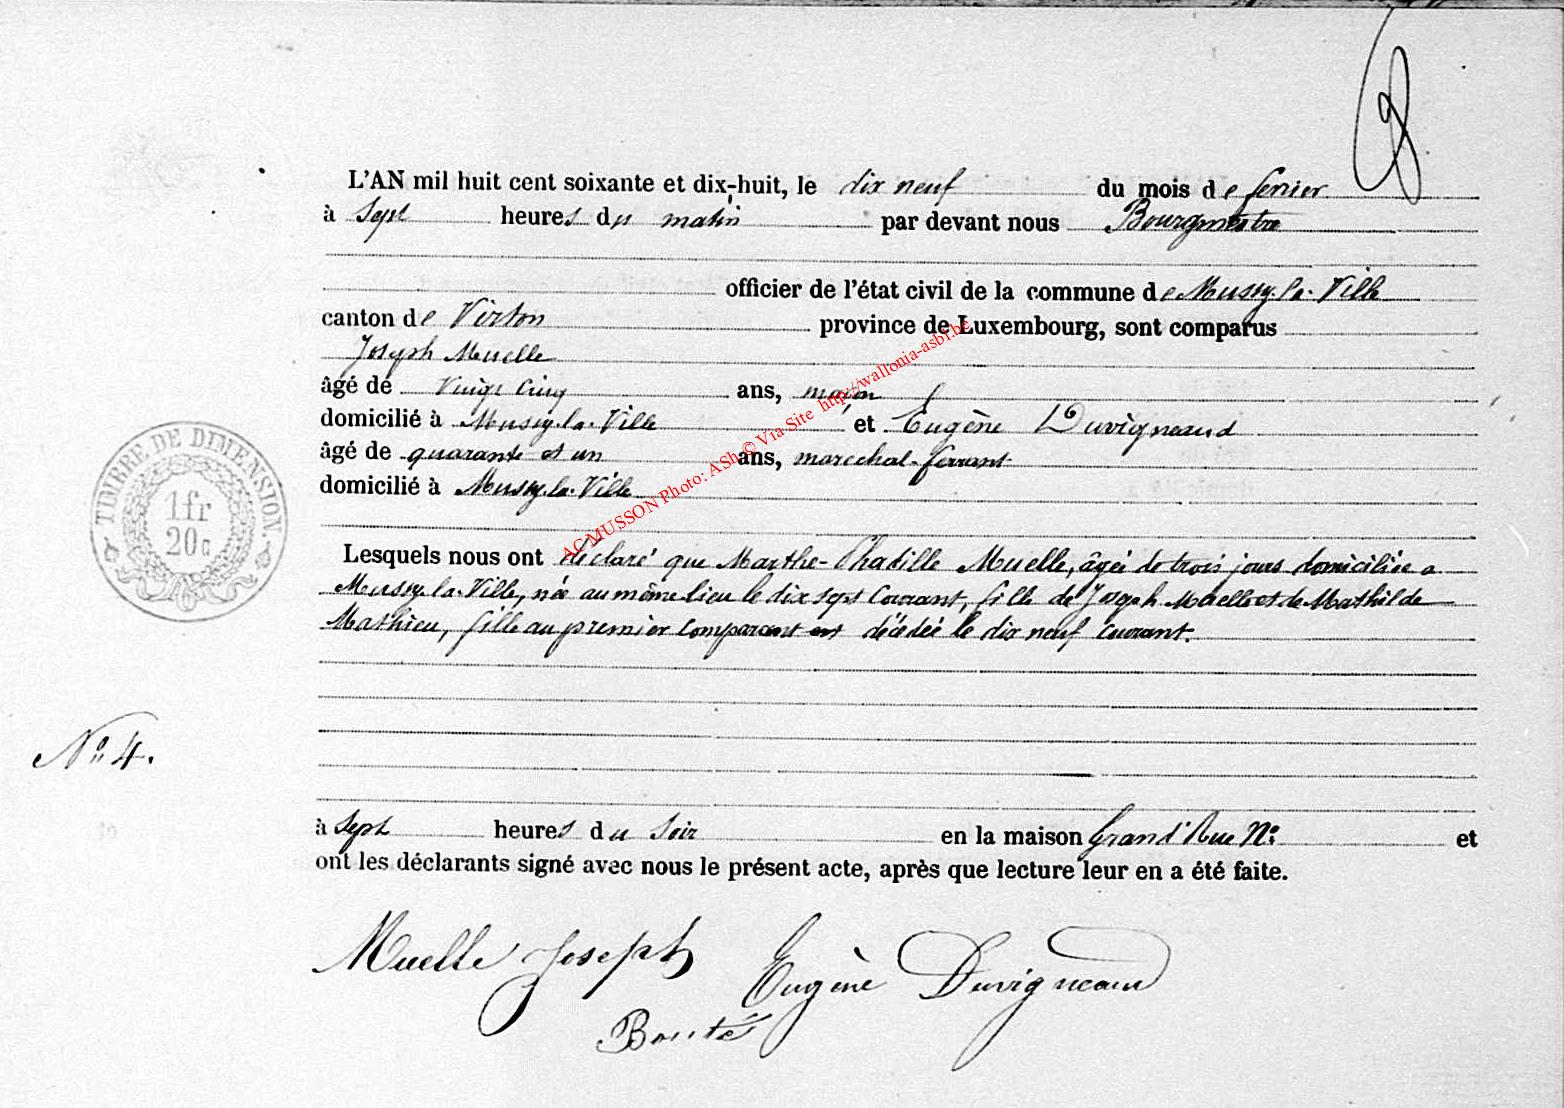 L'AN mil huit cent soixante et dix-huit, le dix neuf du mois de fevrier
à Sept heures du matin par devant nous Bourgmestre
officier de l'état civil de la commune de Mussy-la-Ville
canton de Virton province de Luxembourg, sont comparus
Joseph Muelle
âgé de Vingt Cinq ans, maçon
domicilié à Mussy-la-Ville et Eugène Duvigneaud
âgé de quarante et un ans, marechal-ferrant
domicilié à Mussy-la-Ville
TIMBRE DE DIMENSION.
1 fr
20 c
AC MUSSON Photo: ASh © Via Site http://wallonia-asbl.be
Lesquels nous ont déclaré que Marthe- Muelle, âgée de trois jours domiciliée a
Mussy-la-Ville, née au même lieu le dix sept Courant, fille de Joseph Muelle et de Mathilde
Mathieu, fille au premier comparant est décédée le dix neuf courant.
N° 4.
à Sept heures du Soir en la maison Grand'Rue N° et
ont les déclarants signé avec nous le présent acte, après que lecture leur en a été faite.
Muelle Joseph Eugène Duvigneaud